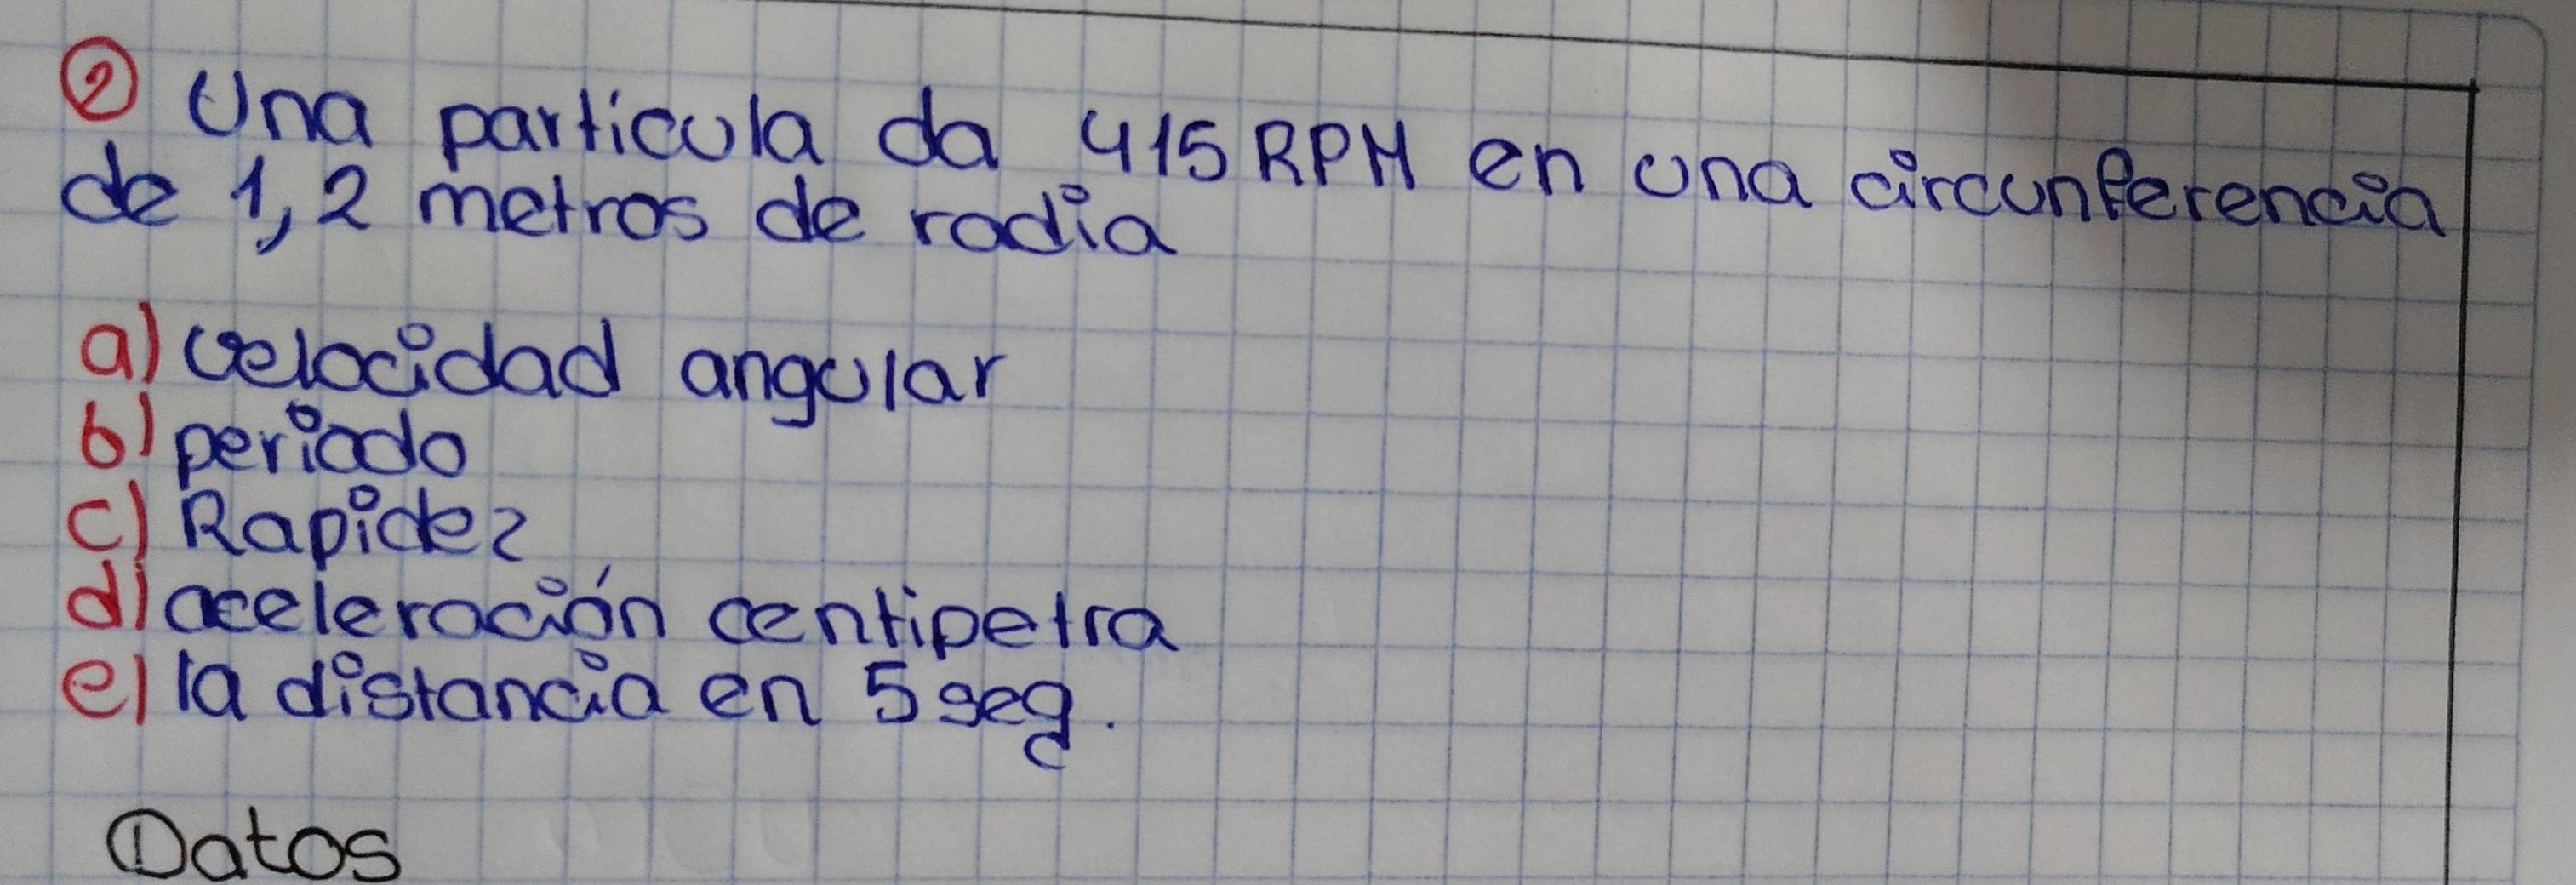 ② Una particula da 415 RPM en una circunferencia
de 1,2 metros de radia
a) velocidad angular
b) periodo
c) Rapidez
d) aceleración centipetra
e) la distancia en 5 seg.
Datos